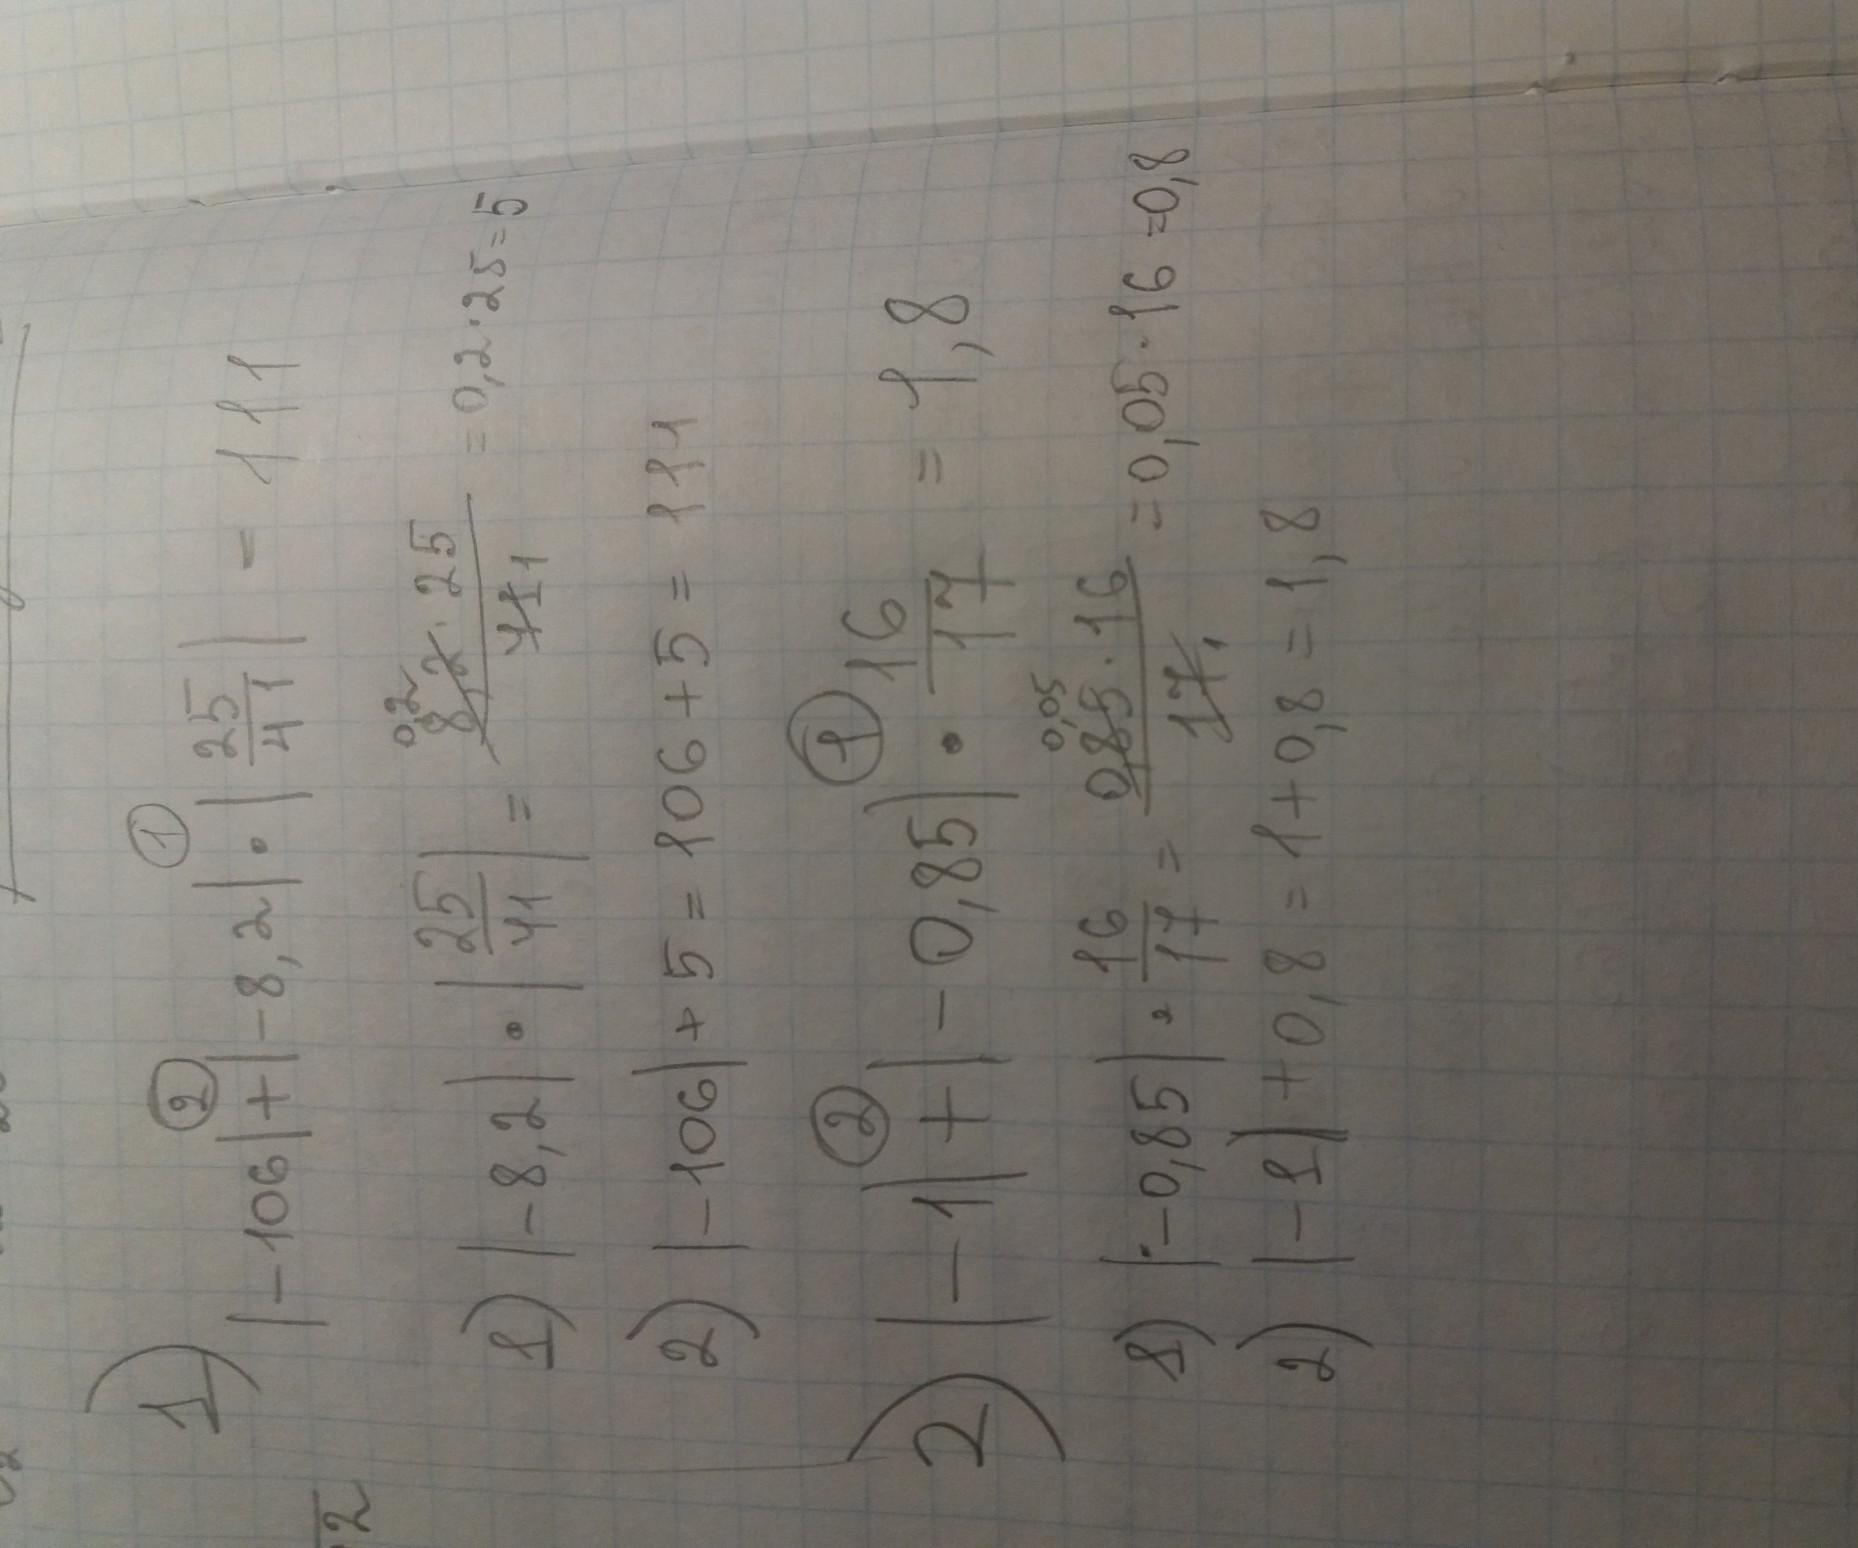 1) |-106| + |-8,2| · |25/41| = 111
1) |-8,2| · |25/41| = 8,2 · 25 / 41 = 0,2 · 25 = 5
2) |-106| + 5 = 106 + 5 = 111
2) |-1| + |-0,85| · 16/17 = 1,8
1) |-0,85| · 16/17 = 0,85 · 16 / 17 = 0,05 · 16 = 0,8
2) |-1| + 0,8 = 1 + 0,8 = 1,8